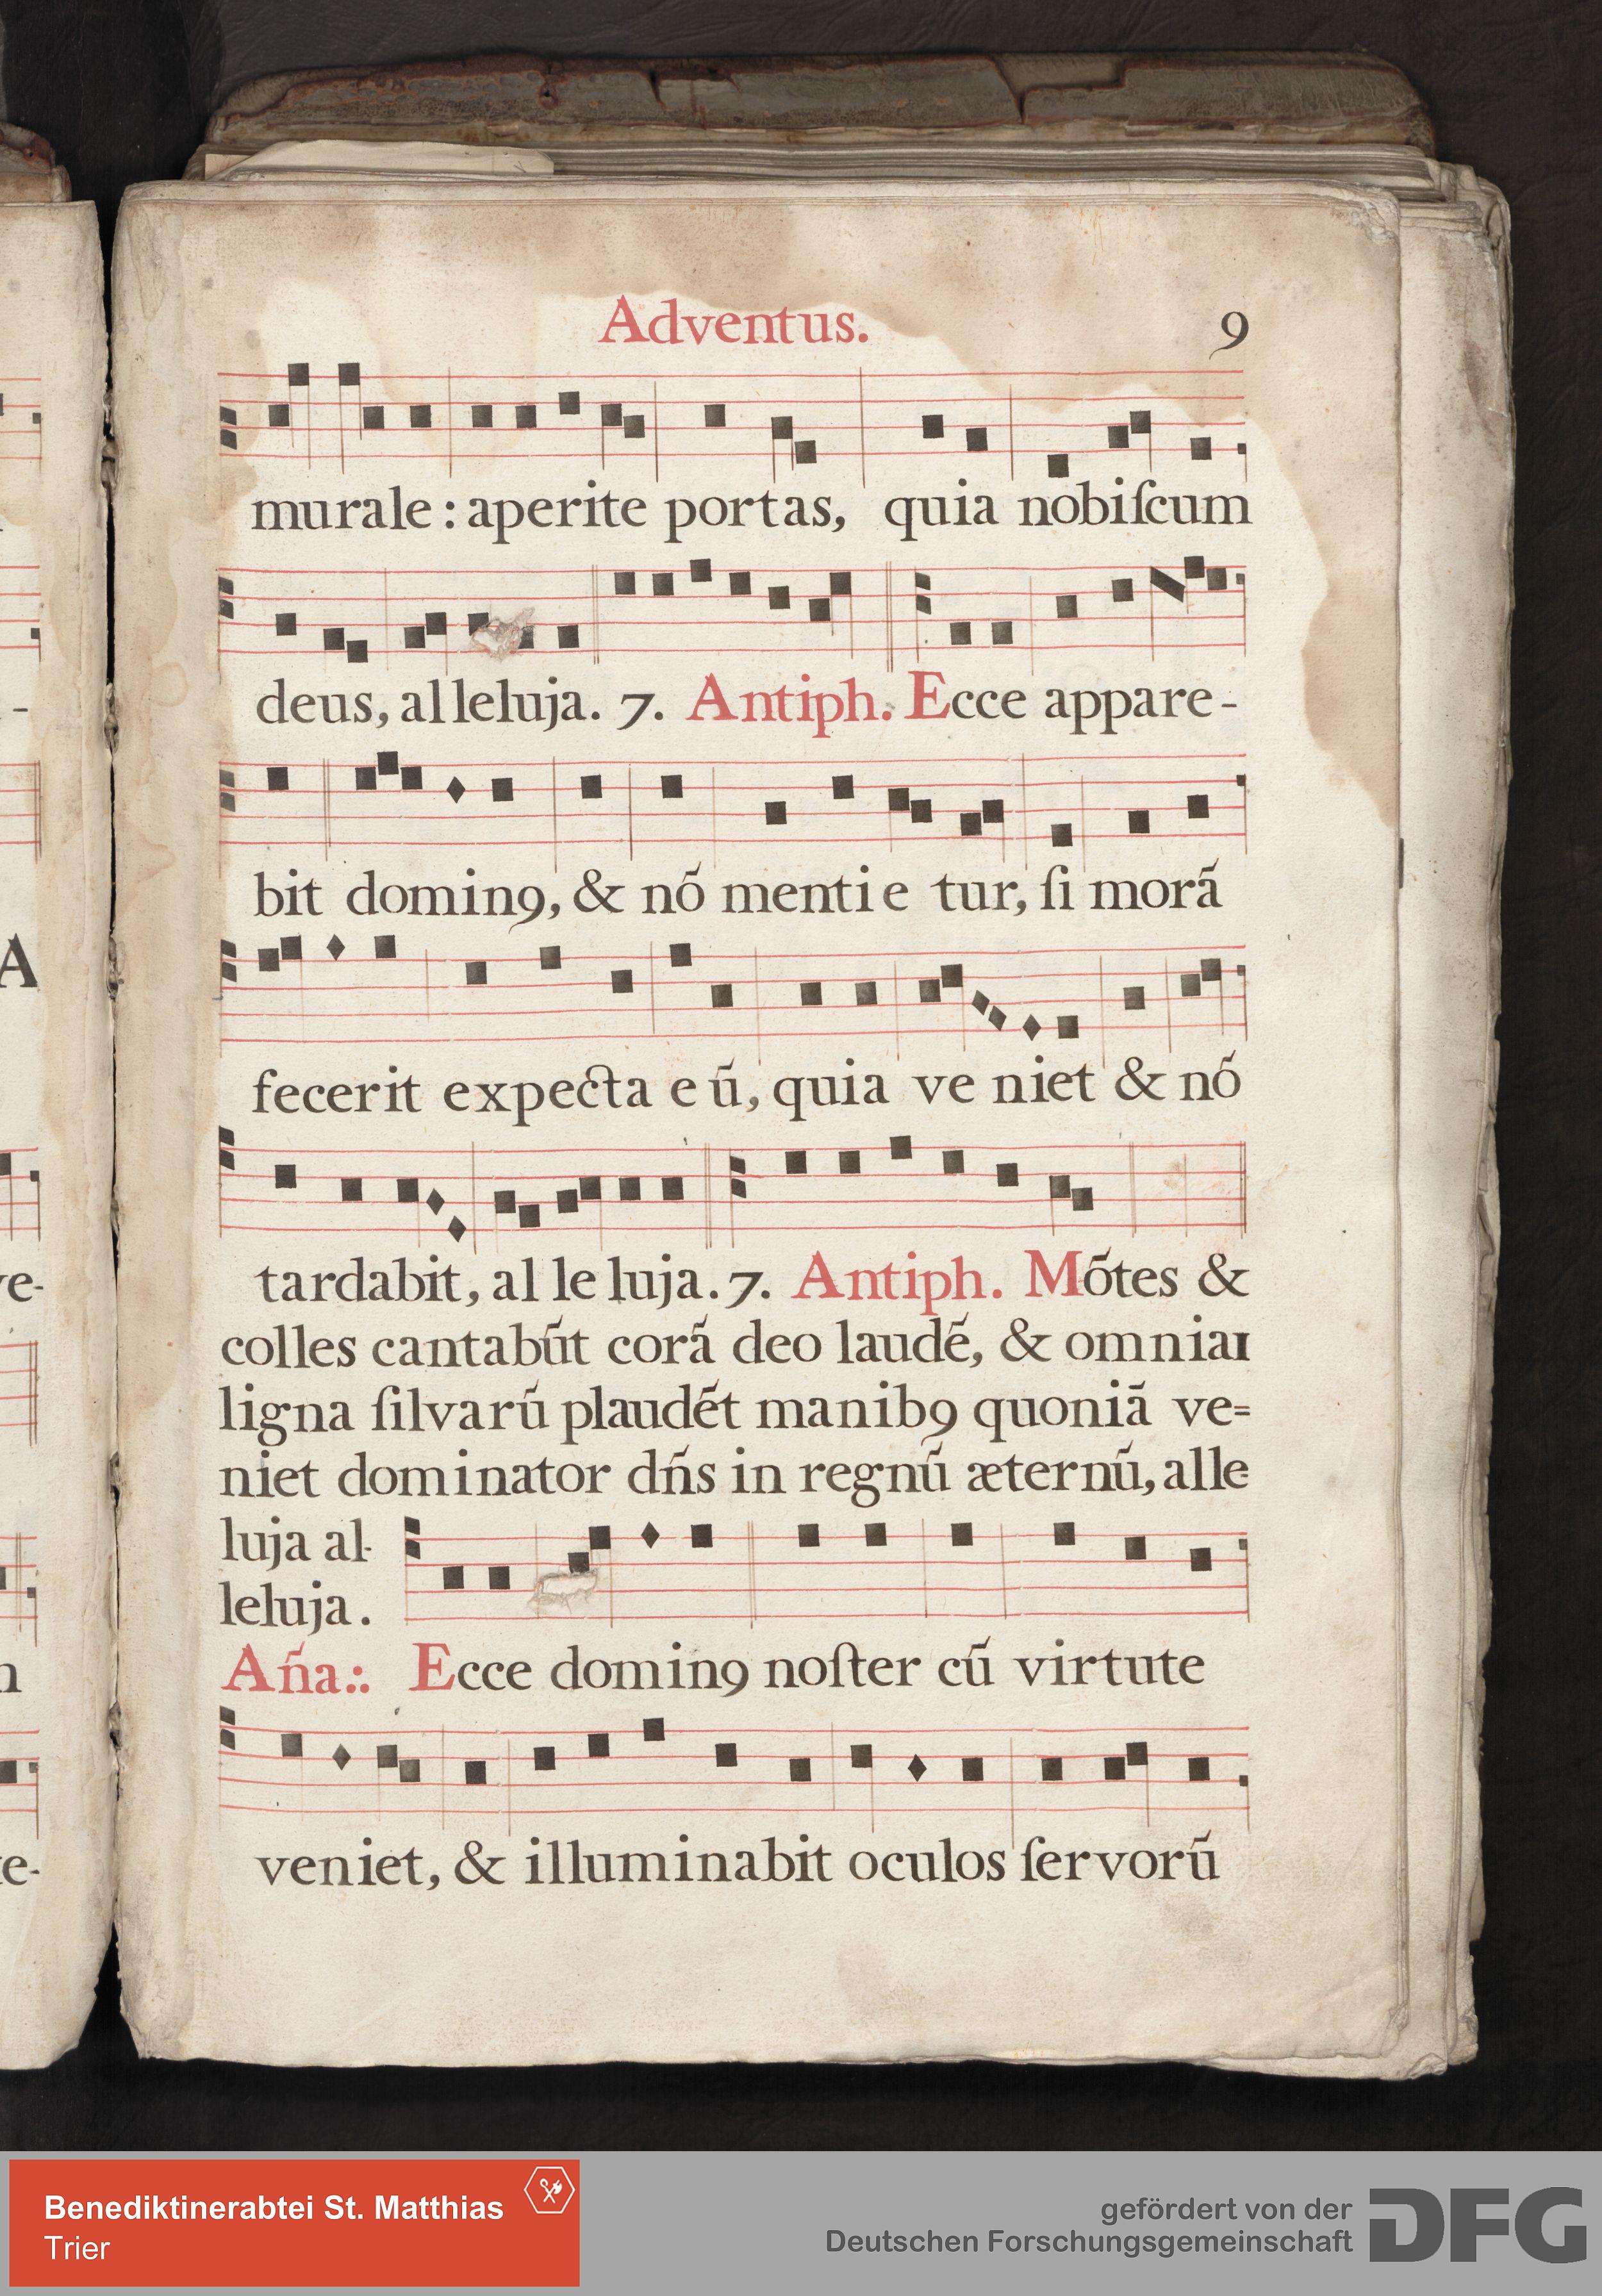 Adventus. 9
murale : aperite portas, quia nobiſcum
deus, alleluja. 7. Antiph. Ecce appare-
bit dominꝯ, & nõ mentie tur, ſi morã
fecerit expecta eũ, quia ve niet & nõ
tardabit, al le luja. 7. Antiph. Mõtes &
colles cantabũt corã deo laudẽ, & omnia
ligna ſilvarũ plaudẽt manibꝯ quoniã ve=
niet dominator dñs in regnũ æternũ, alle
luja al-
leluja.
Aña:. Ecce dominꝯ noſter cũ virtute
veniet, & illuminabit oculos ſervorũ
A
ve-
Benediktinerabtei St. Matthias
Trier
gefördert von der
Deutschen Forschungsgemeinschaft
DFG